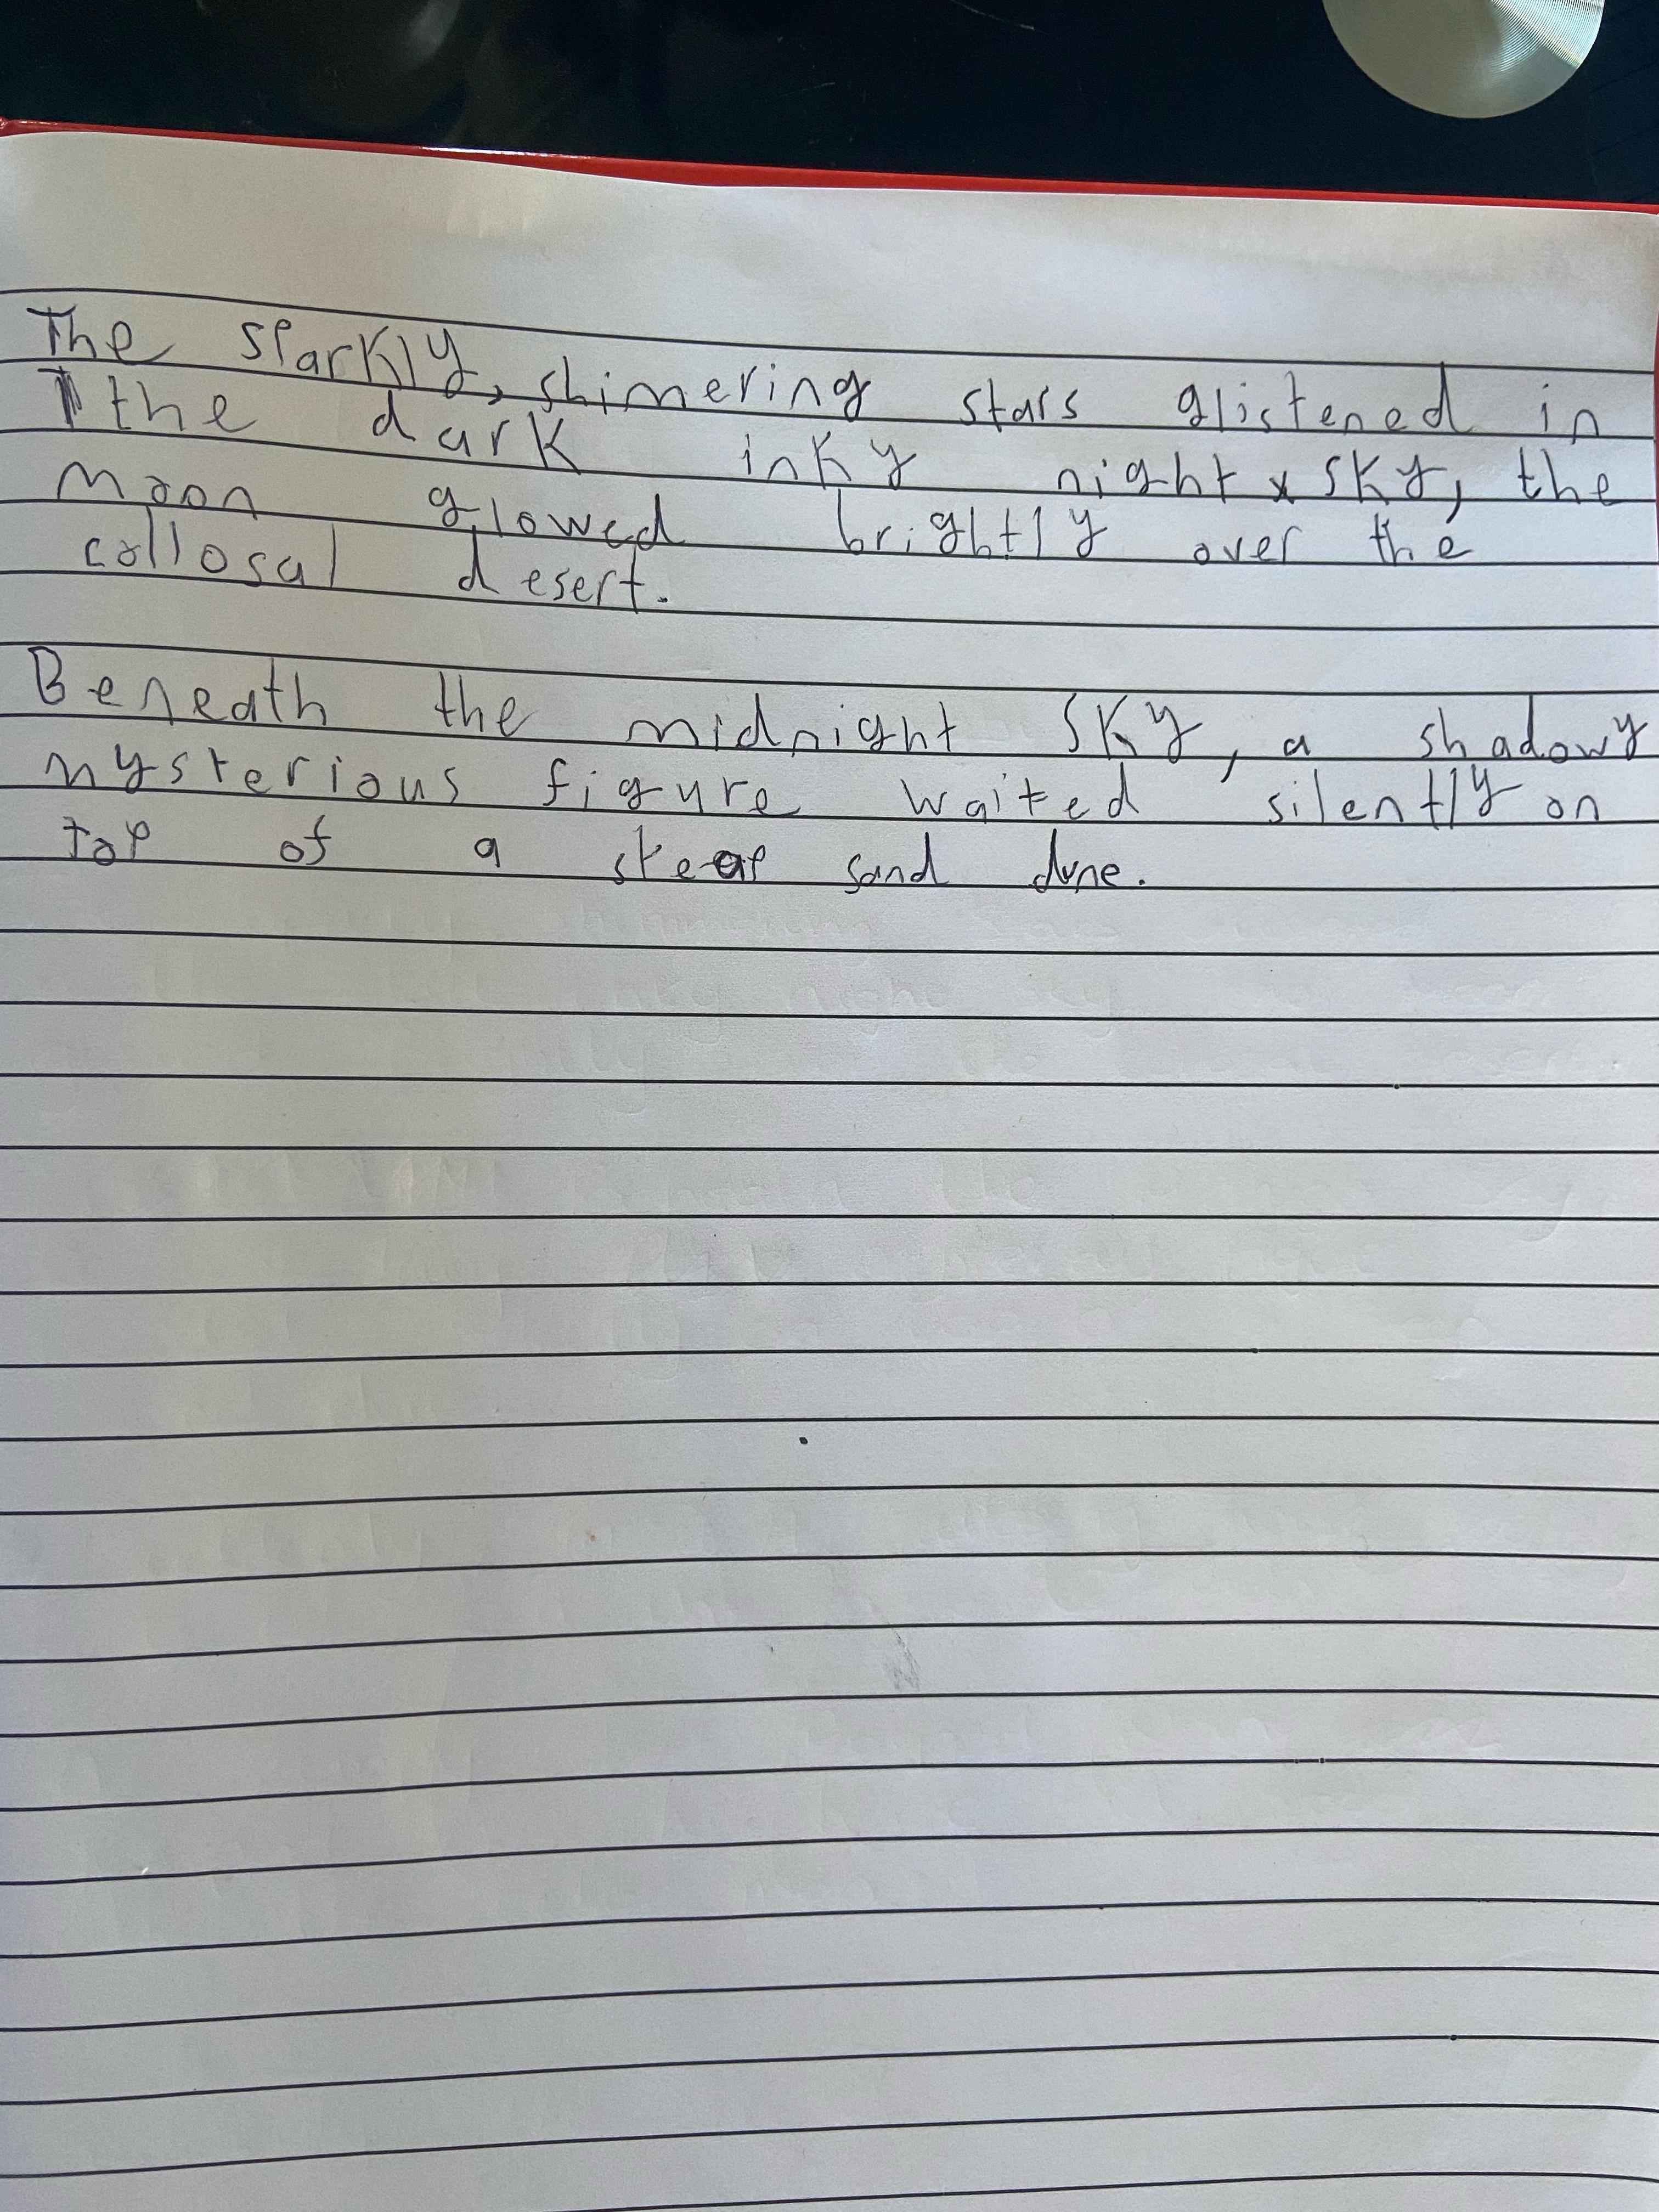 The sparkly, shimering stars glistened in
the dark inky night sky, the
moon glowed brightly over the
collosal desert.
Beneath the midnight sky, a shadowy
mysterious figure waited silently on
top of a steap sand dune.